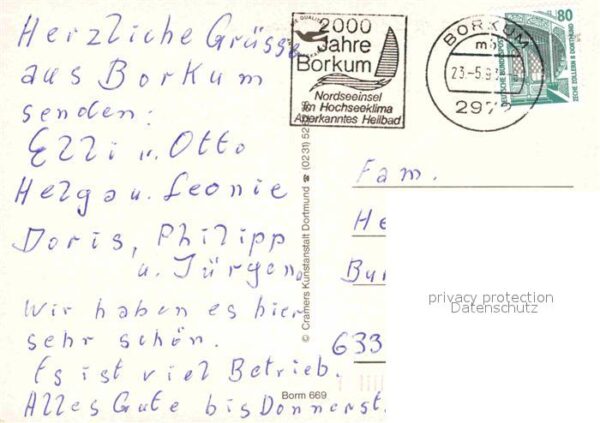 Herzliche Grüsse
aus Borkum
senden:
Elli u. Otto
Helga u. Leonie
Doris, Philipp
u. Jürgen.
Wir haben es hier
sehr schön.
Es ist viel Betrieb.
Alles Gute bis Donnerst.
2000
Jahre
Borkum
Nordseeinsel
im Hochseeklima
Anerkanntes Heilbad
BORKUM
23.-5.9
297
80
DEUTSCHE BUNDESPOST
ZECHE ZOLLERN II DORTMUND
© Cramers Kunstanstalt Dortmund ☎ (0231) 52
Fam.
He
Bu
633
privacy protection
Datenschutz
Borm 669